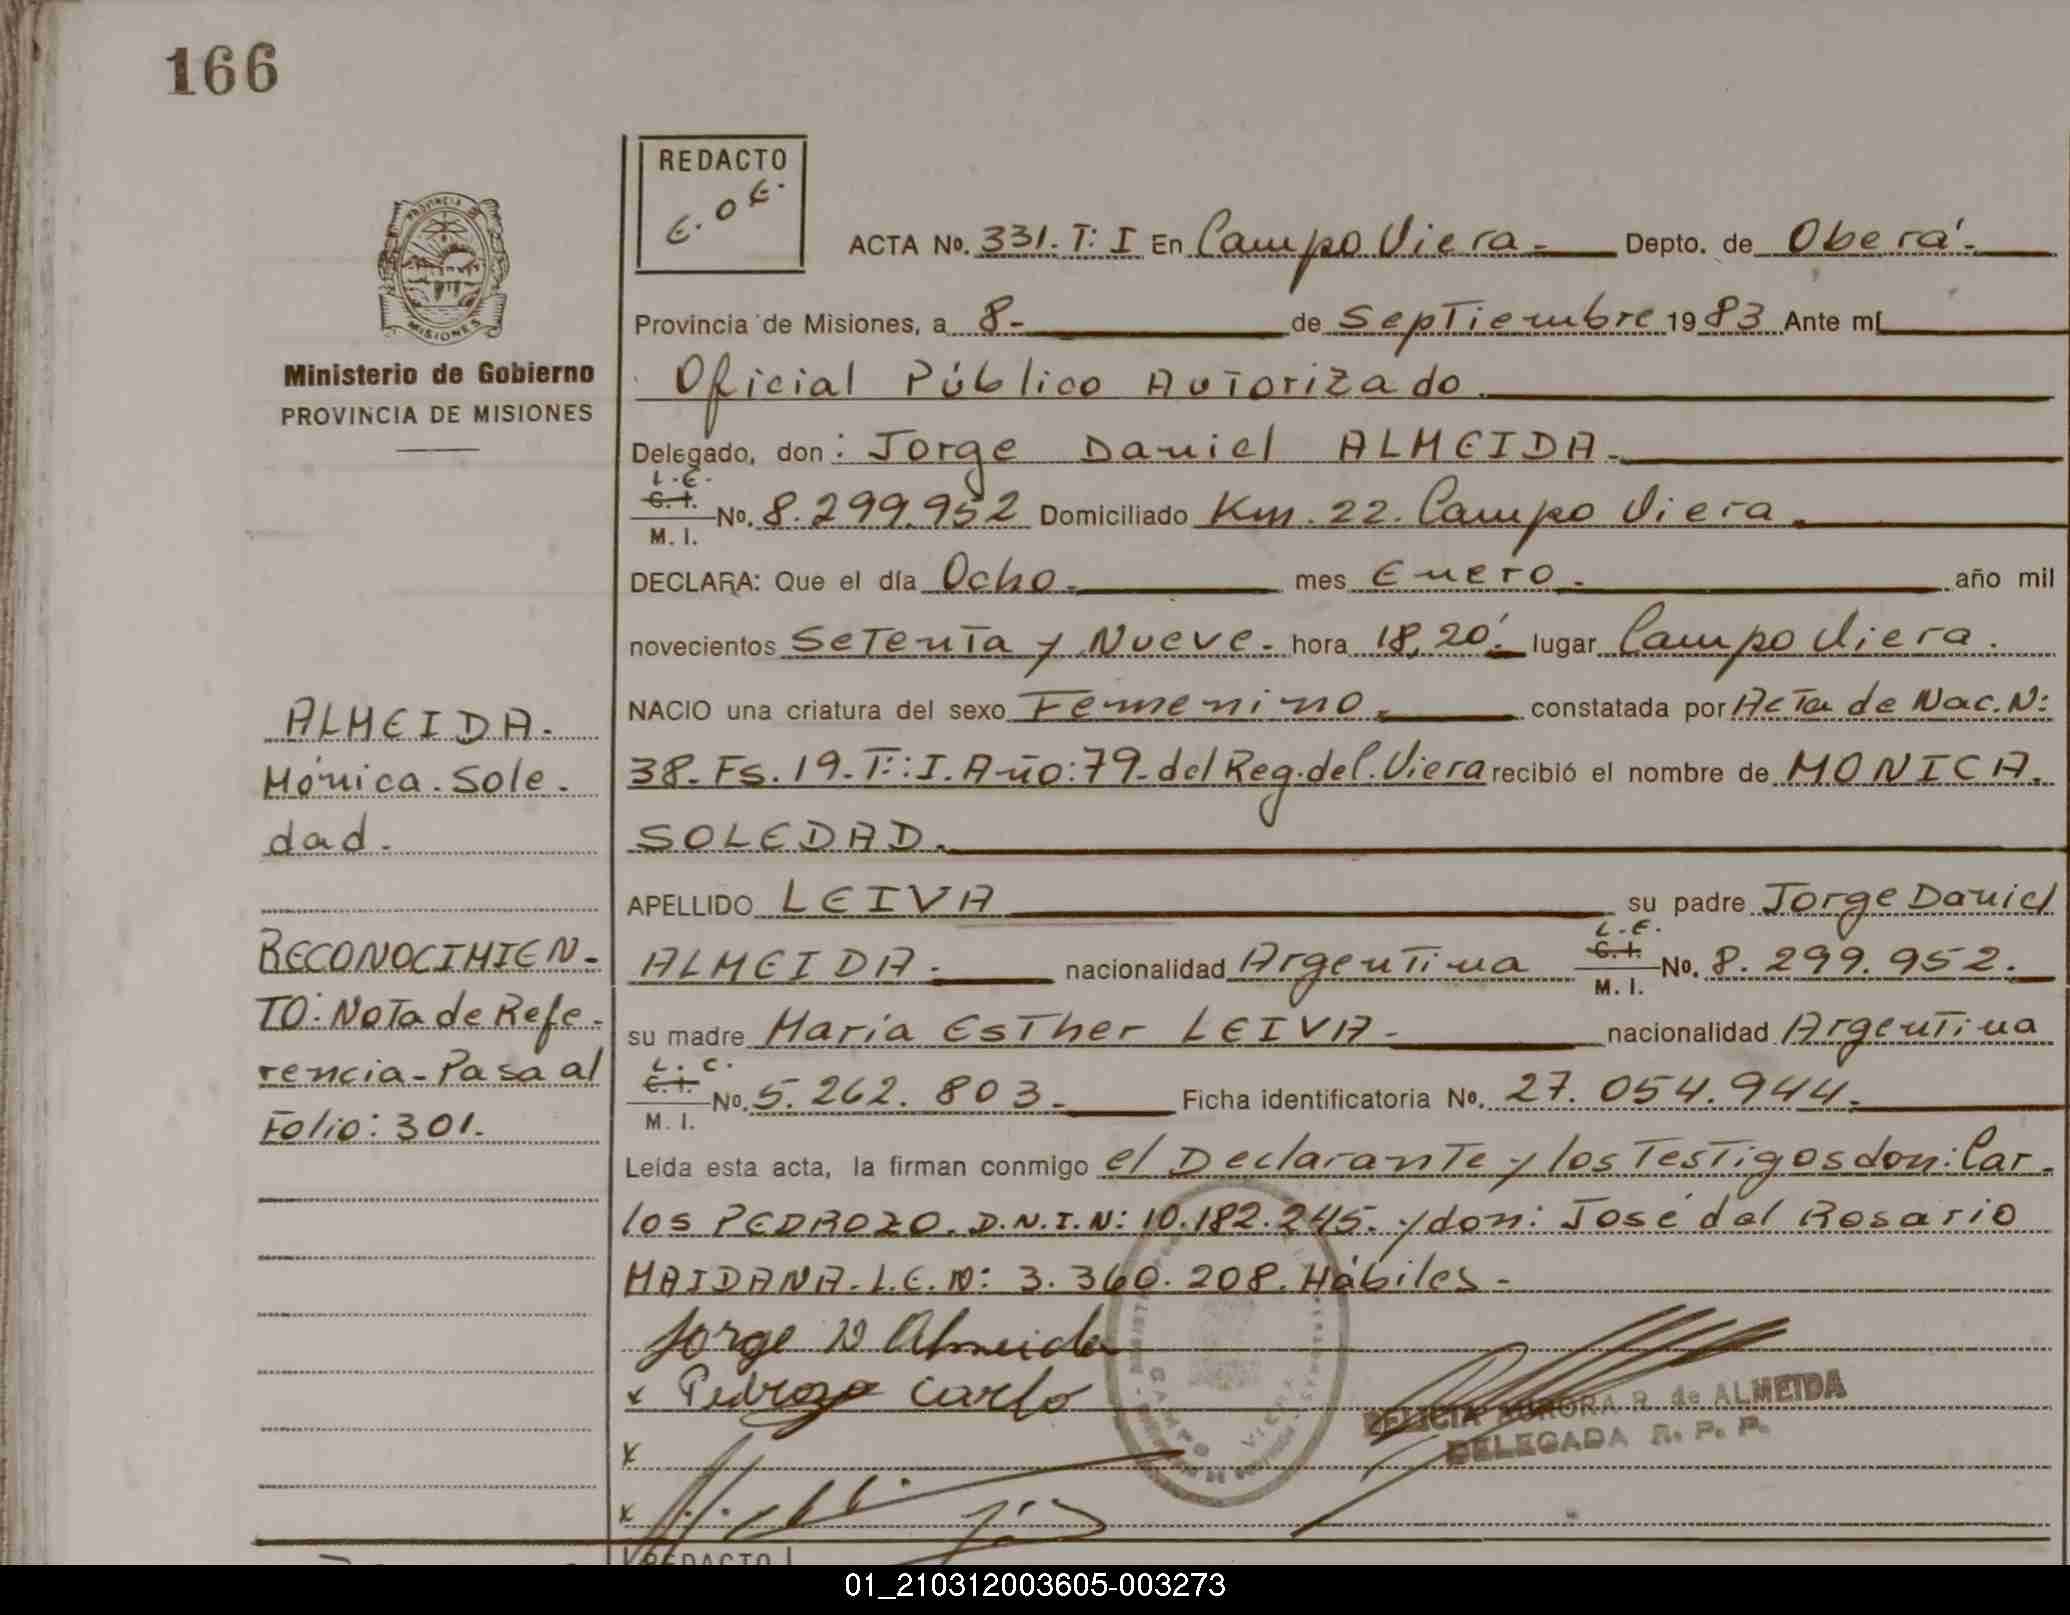 166
REDACTO
E.O.E.
ACTA No. 331. T: I En Campo Viera.- Depto. de Oberá.-
Provincia de Misiones, a 8- de Septiembre 1983 Ante mí
Oficial Público Autorizado
Delegado, don: Jorge Daniel ALMEIDA.
L.E.
C.I.
M. I.
No. 8.299.952 Domiciliado Km. 22. Campo Viera
DECLARA: Que el día Ocho.- mes Enero.- año mil
novecientos Setenta y Nueve.- hora 18,20'. lugar Campo Viera.
NACIO una criatura del sexo Femenino. constatada por Acta de Nac. N:
38.- Fs. 19.- T:: I. Año: 79- del Reg. de C. Viera recibió el nombre de MONICA.
SOLEDAD.
APELLIDO LEIVA su padre Jorge Daniel
ALMEIDA. nacionalidad Argentina
L.E.
C.I.
M. I.
No. 8. 299. 952.
su madre María Esther LEIVA.- nacionalidad Argentina
L. C.
C.I.
M. I.
No. 5. 262. 803.- Ficha identificatoria No. 27. 054. 944.
Leída esta acta, la firman conmigo el Declarante y los Testigos don: Car.
los PEDROZO. D.N.I.N: 10.182.245. y don: José del Rosario
MAIDANA. L.E. N: 3. 360. 208. Hábiles.-
Jorge D Almeida
x Pedrozo Carlo
x
x
FELICIA AURORA R. de ALMEIDA
DELEGADA R. P. P.
CAMPO VIERA
PROVINCIA DE
MISIONES
Ministerio de Gobierno
PROVINCIA DE MISIONES
ALMEIDA.
Mónica. Sole.
dad.
RECONOCIMIEN-
TO: Nota de Refe-
rencia- Pasa al
Folio: 301.
REDACTO
01_210312003605-003273